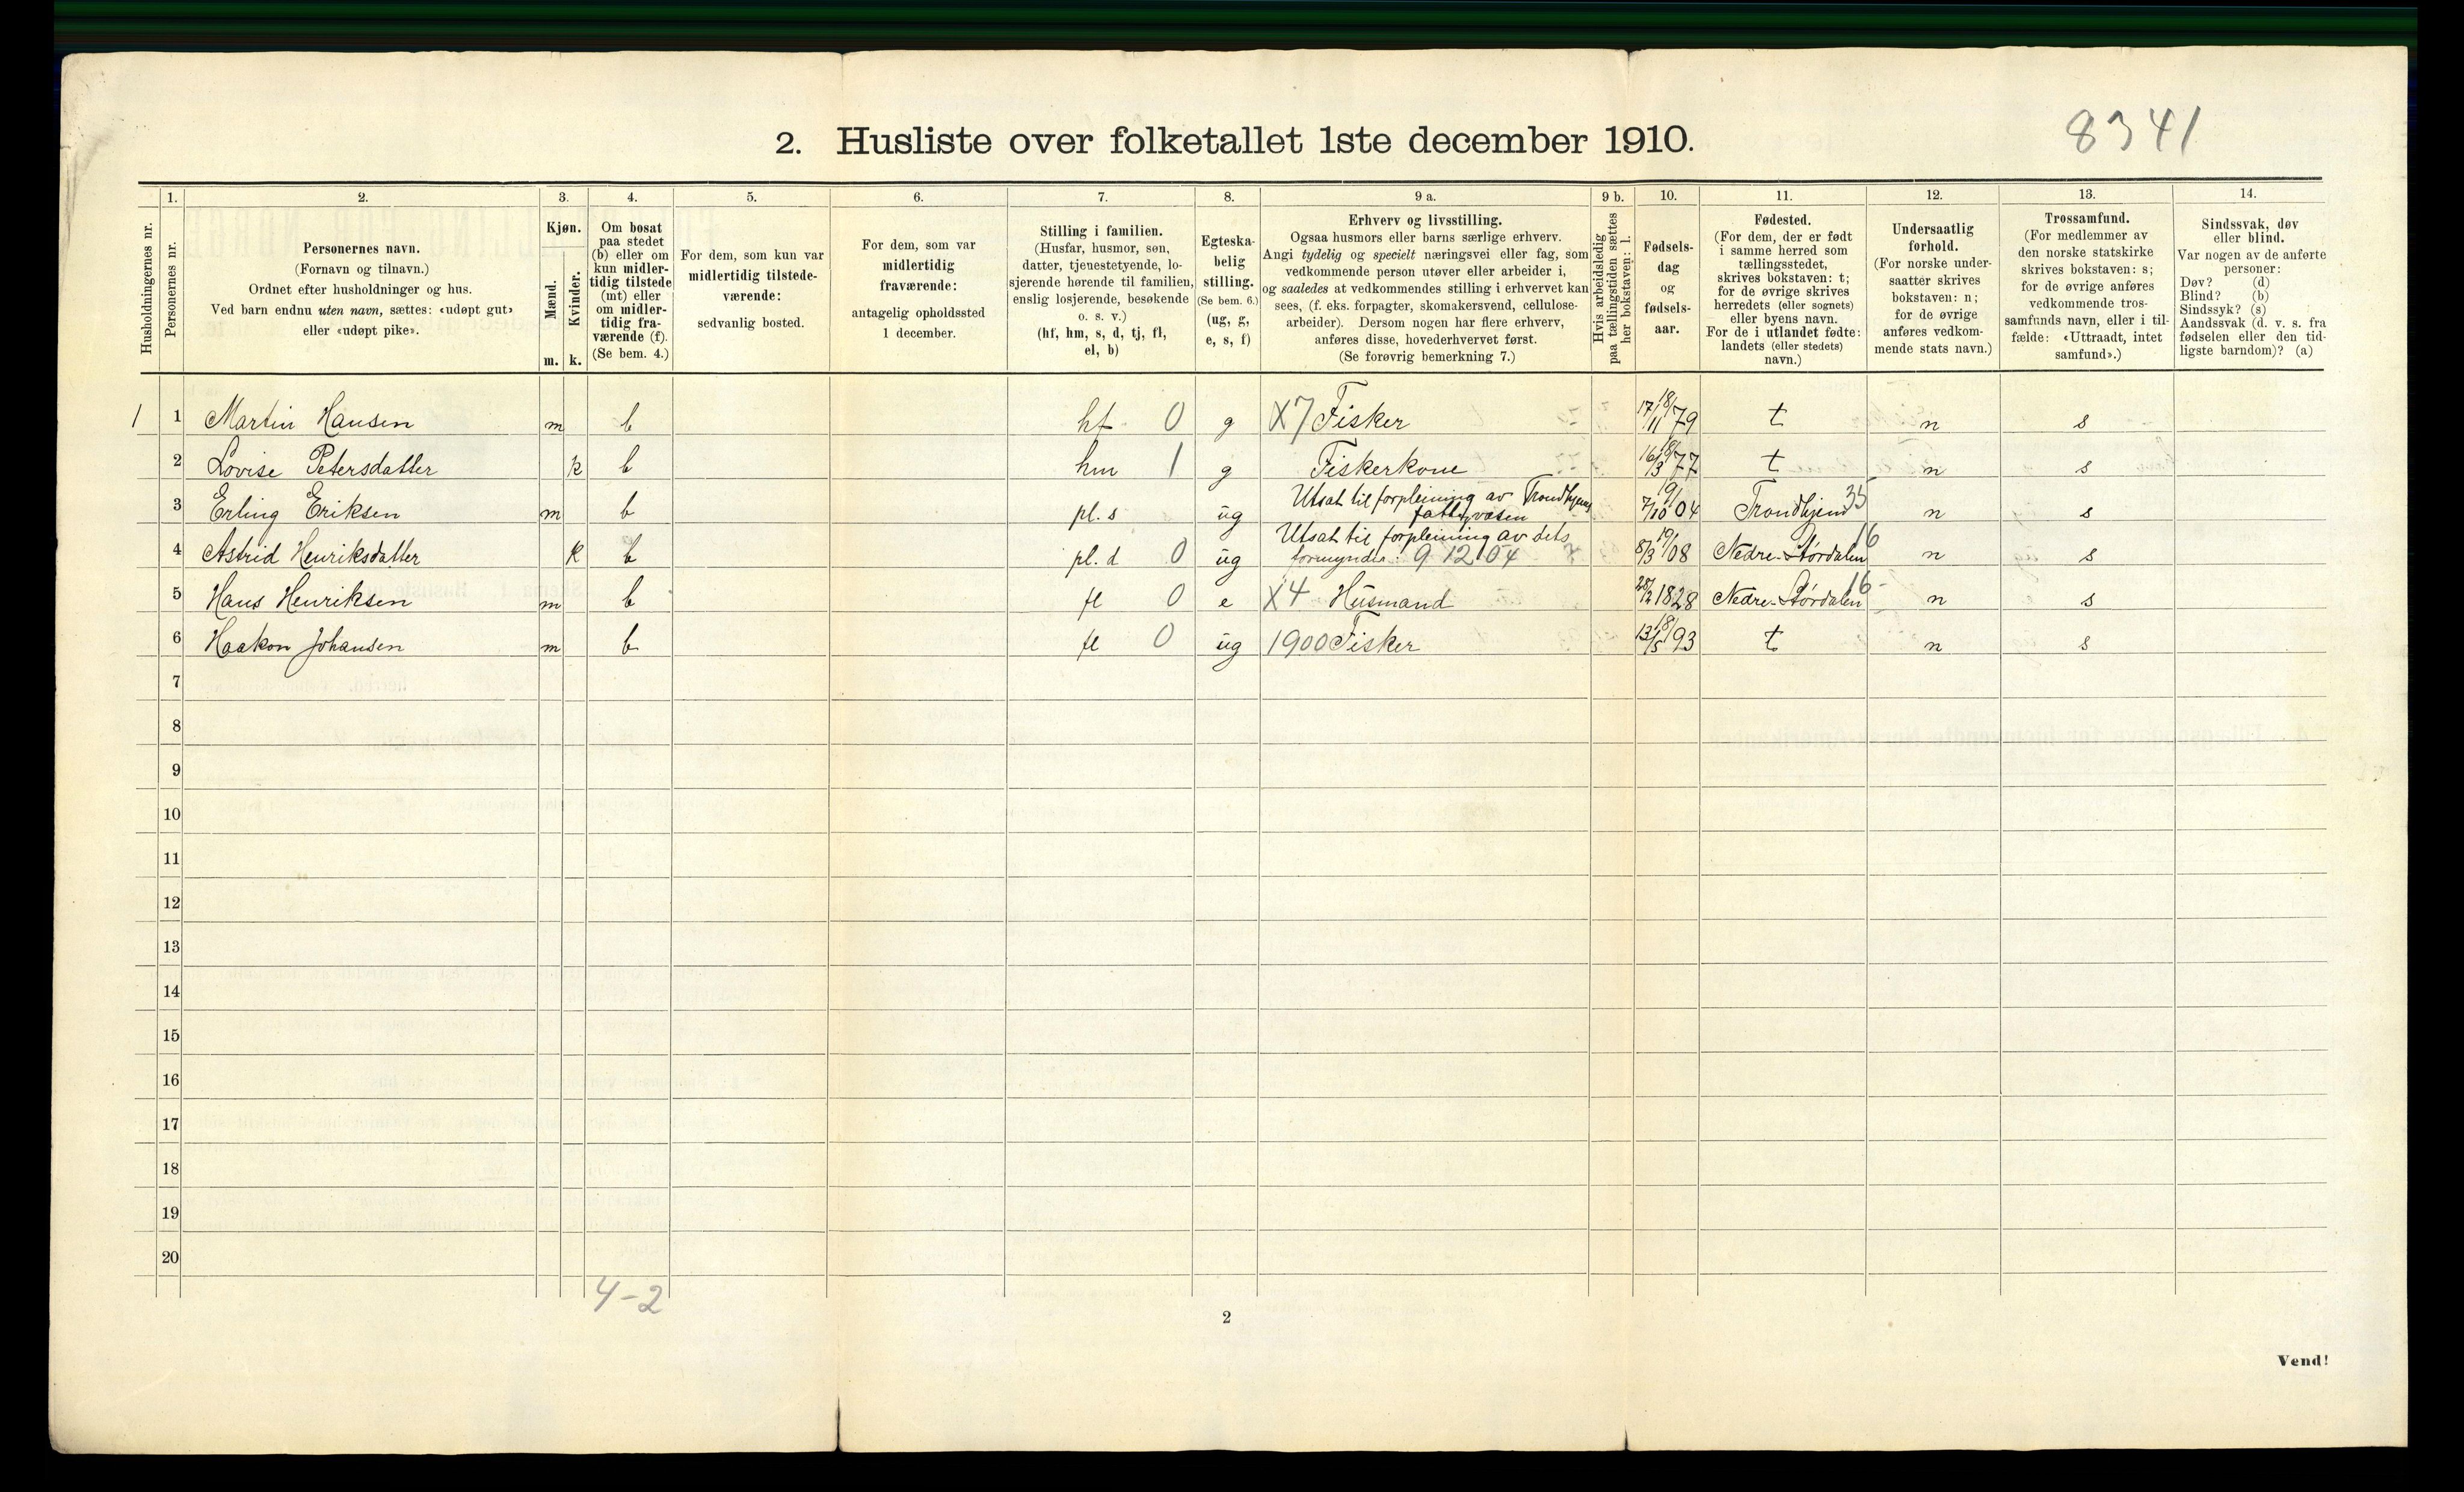 8341
2. Husliste over folketallet 1ste december 1910.
Husholdningernes nr.
1.
Personernes nr.
2.
Personernes navn.
(Fornavn og tilnavn.)
Ordnet efter husholdninger og hus.
Ved barn endnu uten navn, sættes: «udøpt gut»
eller «udøpt pike».
3.
Kjøn.
Mænd.
m.
Kvinder.
k.
4.
Om bosat
paa stedet
(b) eller om
kun midler-
tidig tilstede
(mt) eller
om midler-
tidig fra-
værende (f).
(Se bem. 4.)
5.
For dem, som kun var
midlertidig tilstede-
værende:
sedvanlig bosted.
6.
For dem, som var
midlertidig
fraværende:
antagelig opholdssted
1 december.
7.
Stilling i familien.
(Husfar, husmor, søn,
datter, tjenestetyende, lo-
sjerende hørende til familien,
enslig losjerende, besøkende
o. s. v.)
(hf, hm, s, d, tj, fl,
el, b)
8.
Egteska-
belig
stilling.
(Se bem. 6.)
(ug, g,
e, s, f)
9 a.
Erhverv og livsstilling.
Ogsaa husmors eller barns særlige erhverv.
Angi tydelig og specielt næringsvei eller fag, som
vedkommende person utøver eller arbeider i,
og saaledes at vedkommendes stilling i erhvervet kan
sees, (f. eks. forpagter, skomakersvend, cellulose-
arbeider). Dersom nogen har flere erhverv,
anføres disse, hovederhvervet først.
(Se forøvrig bemerkning 7.)
9 b.
Hvis arbeidsledig
paa tællingstiden sættes
her bokstaven: l.
10.
Fødsels-
dag
og
fødsels-
aar.
11.
Fødested.
(For dem, der er født
i samme herred som
tællingsstedet,
skrives bokstaven: t;
for de øvrige skrives
herredets (eller sognets)
eller byens navn.
For de i utlandet fødte:
landets (eller stedets)
navn.)
12.
Undersaatlig
forhold.
(For norske under-
saatter skrives
bokstaven: n;
for de øvrige
anføres vedkom-
mende stats navn.)
13.
Trossamfund.
(For medlemmer av
den norske statskirke
skrives bokstaven: s;
for de øvrige anføres
vedkommende tros-
samfunds navn, eller i til-
fælde: «Uttraadt, intet
samfund».)
14.
Sindssvak, døv
eller blind.
Var nogen av de anførte
personer:
Døv? (d)
Blind? (b)
Sindssyk? (s)
Aandssvak (d. v. s. fra
fødselen eller den tid-
ligste barndom)? (a)
1 1 Martin Hansen m b hf 0 g X7 Fisker 17/11 18/79 t n s
2 Lovise Petersdatter k b hm 1 g Fiskerkone 16/3 18/77 t n s
3 Erling Eriksen m b pl. s ug Utsat til forpleining av Trondhjems fattigvæsen 7/10 19/04 Trondhjem 35 n s
4 Astrid Henriksdatter k b pl. d 0 ug Utsat til forpleining av dets formynder: 9 12 104 8/3 19/08 Nedre-Størdalen 16 n s
5 Hans Henriksen m b fl 0 e X4 Husmand 28/12 1828 Nedre-Størdalen 16 n s
6 Haakon Johansen m b fl 0 ug 1900 Fisker 13/5 18/93 t n s
7
8
9
10
11
12
13
14
15
16
17
18
19
20
4-2
2
Vend!